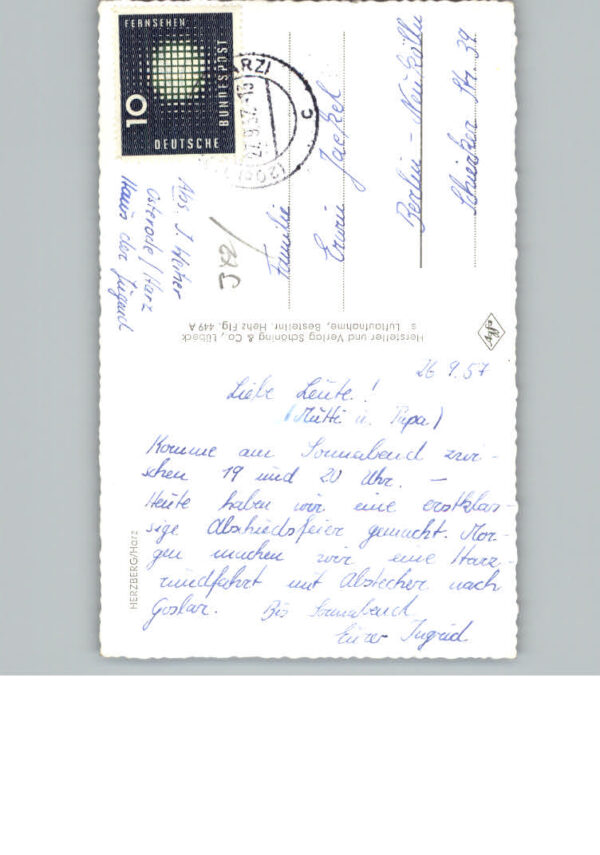 FERNSEHEN
10
DEUTSCHE
BUNDESPOST
27.9.57-18
c
Abs. J.
Osterode/Harz
Haus der Jugend
Familie
Erwin Jaekel
Berlin-Neukölln
Schierker Str. 39
Hersteller und Verlag Schöning & Co., Lübeck
s Luftaufnahme, Bestellnr. Hehz Flg. 449 A
HERZBERG/Harz
26.9.57
Liebe Leute!
(Mutti u. Papa)
Komme am Sonnabend zwi-
schen 19 und 20 Uhr. —
Heute haben wir eine erstklas-
sige Abschiedsfeier gemacht. Mor-
gen machen wir eine Harz-
rundfahrt mit Abstecher nach
Goslar. Bis Sonnabend
Eurer Ingrid